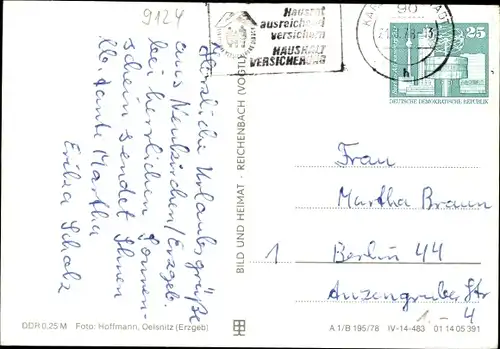 9124
Hausrat
ausreichend
versichern
HAUSHALT
VERSICHERUNG
90
h
25
DEUTSCHE DEMOKRATISCHE REPUBLIK
Herzliche Urlaubsgrüße
aus Neukirchen/Erzgeb.
bei herrlichen Sonnen-
schein sendet Ihnen
lb. Tante Martha
Erika Scholz
BILD UND HEIMAT · REICHENBACH (VOGTL)
Frau
Martha Braun
1 Berlin 44
Anzengruber Str.
1. - 4
DDR 0.25 M Foto: Hoffmann, Oelsnitz (Erzgeb)
A 1/B 195/78 IV-14-483 01 14 05 391